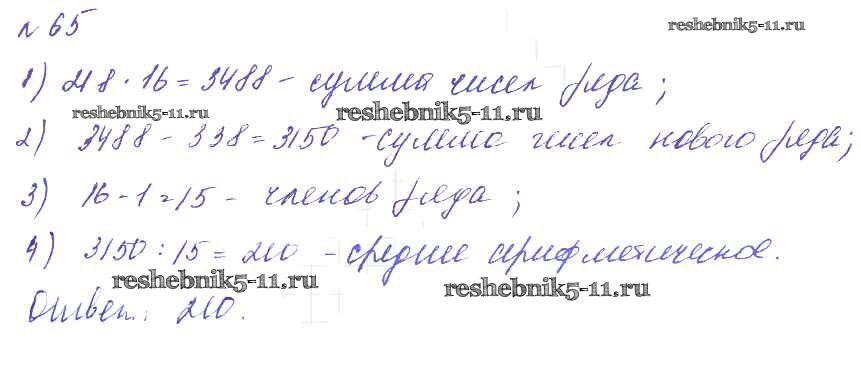 № 65
reshebnik5-11.ru
1) 218 · 16 = 3488 - сумма чисел ряда;
reshebnik5-11.ru
reshebnik5-11.ru
2) 3488 - 338 = 3150 - сумма чисел нового ряда;
3) 16 - 1 = 15 - членов ряда;
4) 3150 : 15 = 210 - среднее арифметическое.
reshebnik5-11.ru
reshebnik5-11.ru
Ответ: 210.